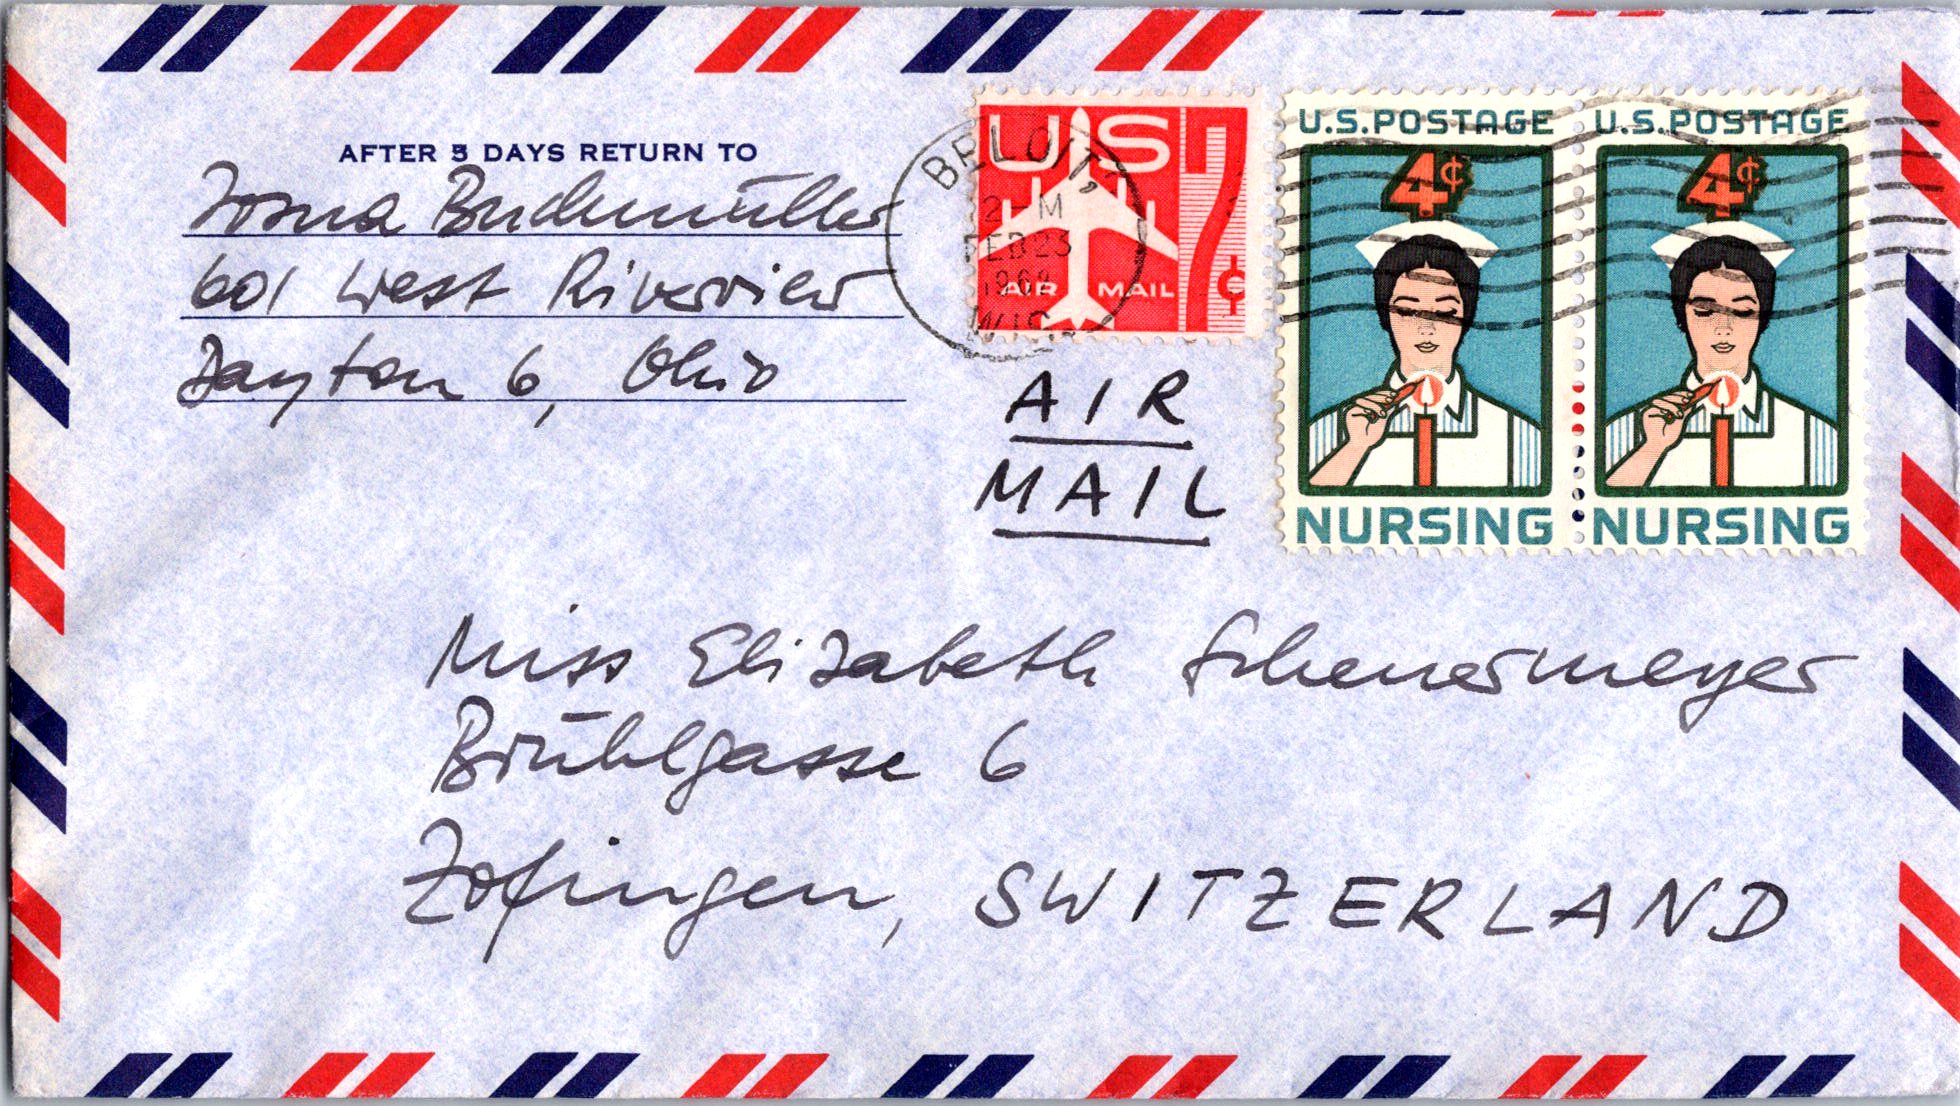 AFTER 5 DAYS RETURN TO
Buchmüller
601 West Riverview
Dayton 6, Ohio
BELOIT,
2 - M
FEB 23
196
WIS.
US 7¢
AIR MAIL
U.S.POSTAGE
4¢
NURSING
U.S.POSTAGE
4¢
NURSING
AIR
MAIL
Miss Elizabeth Scheuermeyer
Brühlgasse 6
Zofingen, SWITZERLAND